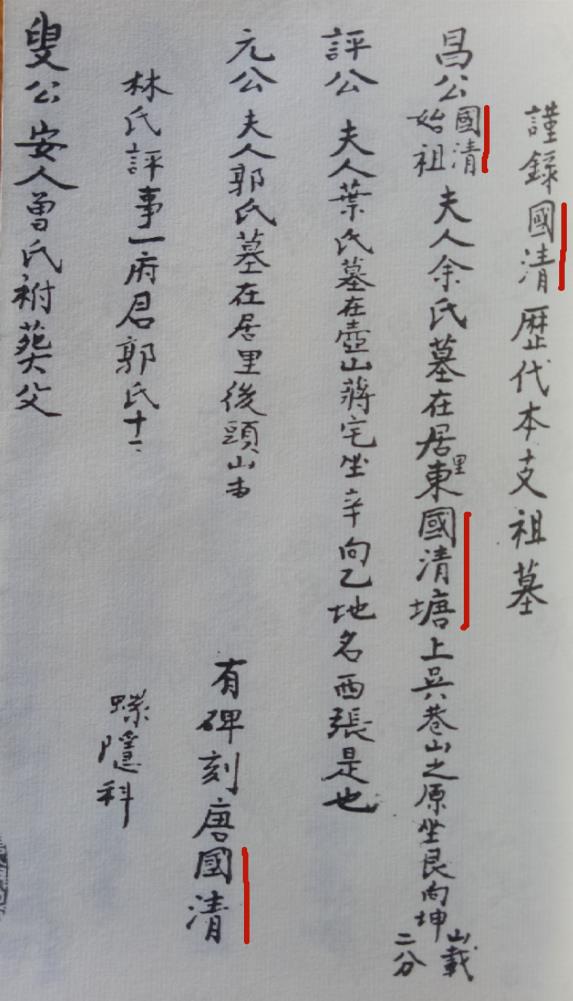 謹錄國清歷代本支祖墓
昌公國清始祖夫人余氏墓在居里東國清塘上吳巷山之原坐艮向坤山載二分
評公夫人葉氏墓在壺山蔣宅坐辛向乙地名西張是也
元公夫人郭氏墓在居里後頭山 有碑刻唐國清
林氏評事一府君郭氏十二 隱科
叟公安人曾氏祔葬父